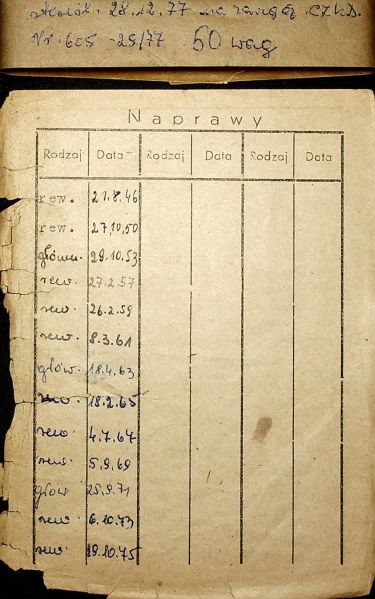 28.12.77 na
Nr. 605 -29/77 50 wag
Naprawy
Rodzaj Data Rodzaj Data Rodzaj Data
rew. 21.8.46
rew. 27,10,50
główn. 29.10.53
rew. 27.2.57
rew. 26.2.59
rew. 8.3.61
głów. 18.4.63
rew. 18.2.65
rew. 4.7.67
rew. 5.9.69
głów 25.9.71
rew. 6.10.73
rew. 19.10.75